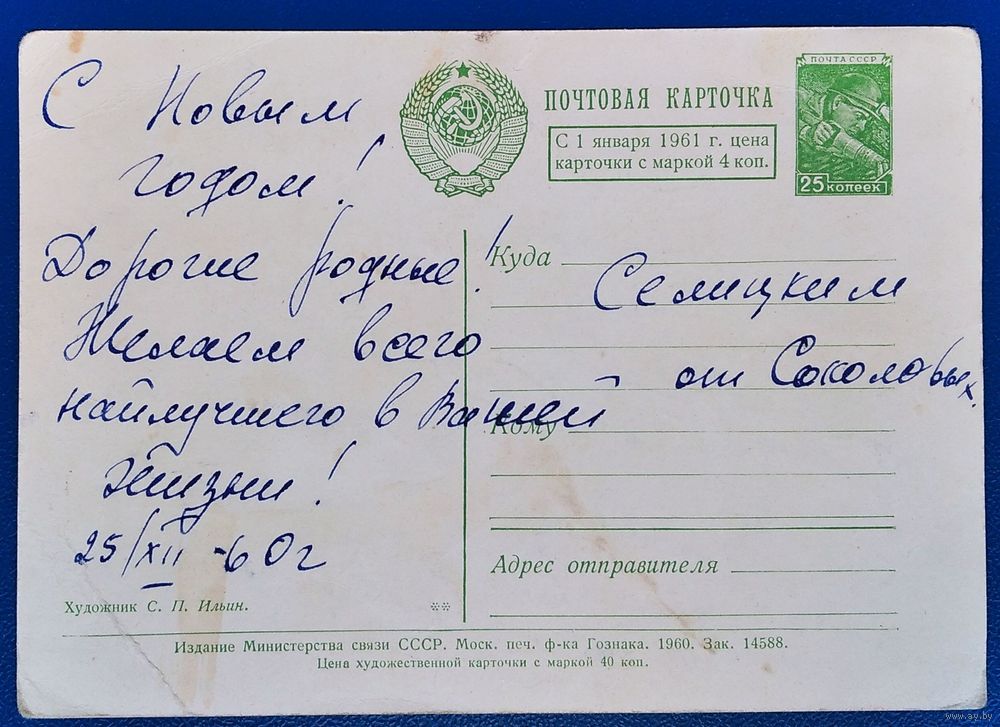 С Новым
годом!
Дорогие родные!
Желаем всего
найлучшего в Вашей
жизни!
25/XII-60г
Художник С. П. Ильин.
ПОЧТОВАЯ КАРТОЧКА
С 1 января 1961 г. цена
карточки с маркой 4 коп.
ПОЧТА СССР
25 КОПЕЕК
Куда
Селицким
от Соколовых.
Кому
Адрес отправителя
Издание Министерства связи СССР. Моск. печ. ф-ка Гознака. 1960. Зак. 14588.
Цена художественной карточки с маркой 40 коп.
www.ay.by